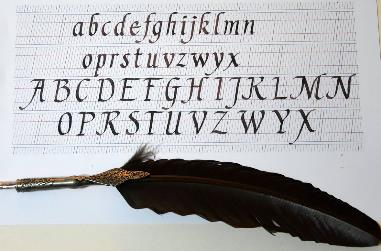 abcdefghijklmn
oprstuvzwyx
ABCDEFGHIJKLMN
OPRSTUVZWYX